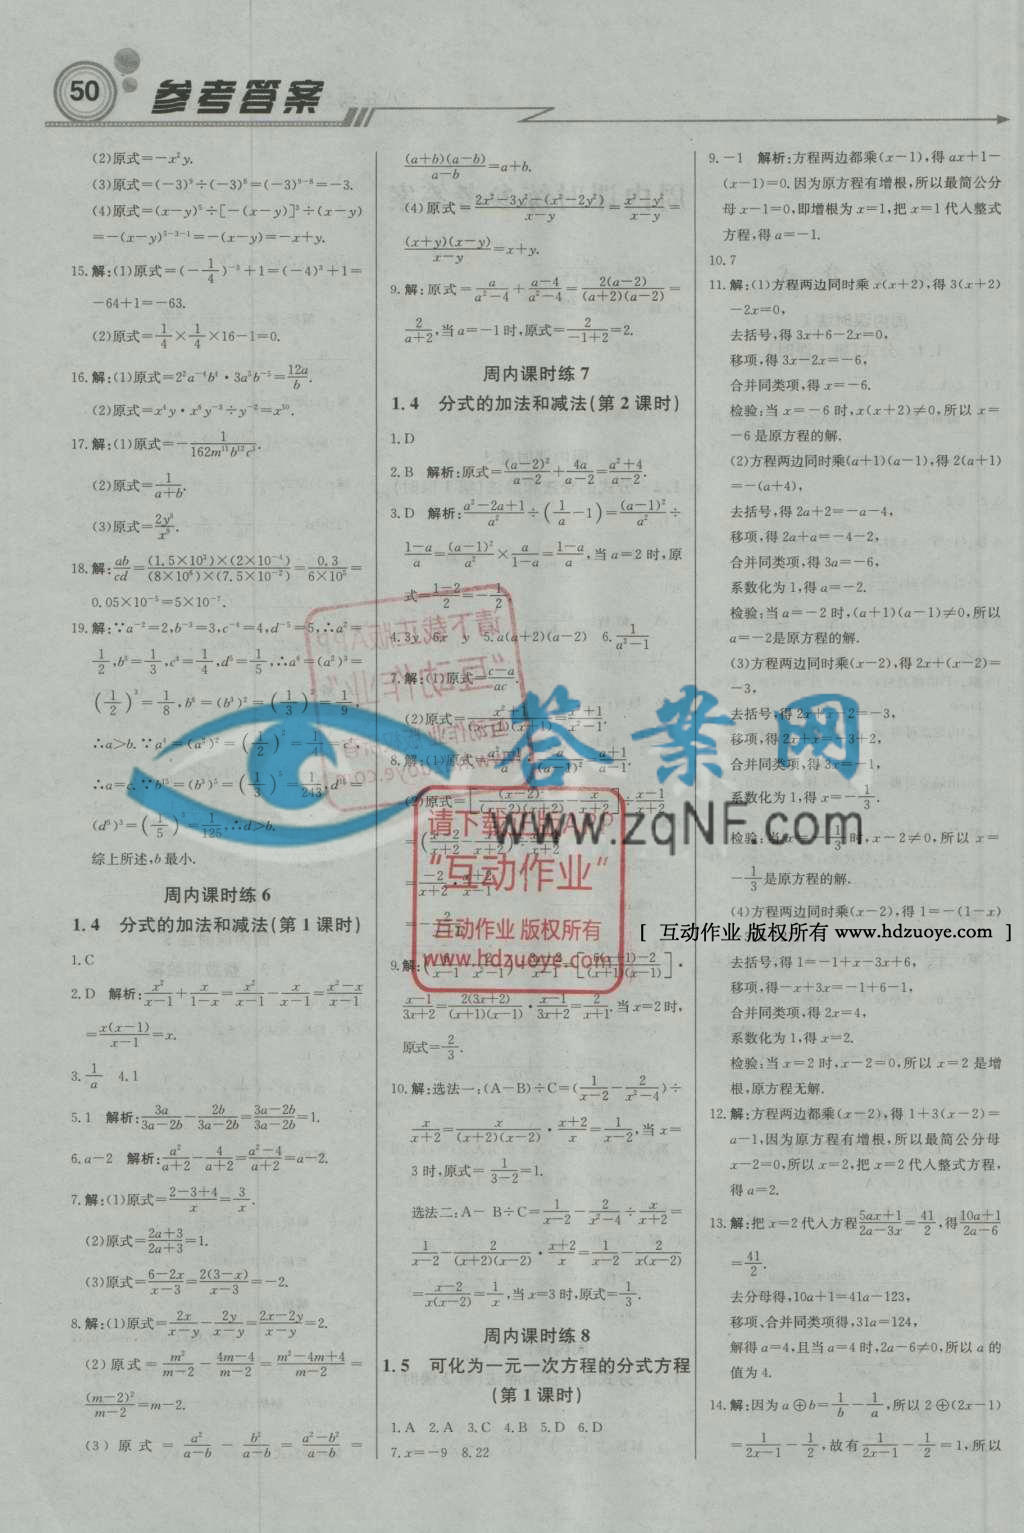 50 参考答案
(2)原式=-x²y.
(3)原式=(-3)⁹÷(-3)⁸=(-3)⁹⁻⁸=-3.
(4)原式=(x-y)⁵÷[-(x-y)]³÷(x-y)
=-(x-y)⁵⁻³⁻¹=-(x-y)=-x+y.
15.解:(1)原式=(-1/4)⁻³+1=(-4)³+1=
-64+1=-63.
(2)原式=1/4×1/4×16-1=0.
16.解:(1)原式=2²a⁻⁴b⁴·3a⁵b⁻⁵=12a/b.
(2)原式=x⁴y·x⁸y⁻³÷y⁻²=x¹⁰.
17.解:(1)原式=-1/(162m¹¹b¹²c³).
(2)原式=1/(a+b).
(3)原式=2y³/x³.
18.解:ab/cd=(1.5×10³)×(2×10⁻⁴)/(8×10⁶)×(7.5×10⁻²)=0.3/(6×10⁵)=
0.05×10⁻⁵=5×10⁻⁷.
19.解:∵a⁻²=2,b⁻³=3,c⁻⁴=4,d⁻⁵=5,∴a²=
1/2,b³=1/3,c⁴=1/4,d⁵=1/5,∴a⁶=(a²)³=
(1/2)³=1/8,b⁶=(b³)²=(1/3)²=1/9,
∴a>b.∵a⁴=(a²)²=(1/2)²=1/4=c⁴,
∴a=c.∵b¹⁵=(b³)⁵=(1/3)⁵=1/243,d¹⁵=
(d⁵)³=(1/5)³=1/125,∴d>b.
综上所述,b最小.
周内课时练6
1.4 分式的加法和减法(第1课时)
1.C
2.D 解析:x²/(x-1)+x/(1-x)=x²/(x-1)-x/(x-1)=(x²-x)/(x-1)
=x(x-1)/(x-1)=x.
3.1/a 4.1
5.1 解析:3a/(3a-2b)-2b/(3a-2b)=(3a-2b)/(3a-2b)=1.
6.a-2 解析:a²/(a+2)-4/(a+2)=(a²-4)/(a+2)=a-2.
7.解:(1)原式=(2-3+4)/x=3/x.
(2)原式=(2a+3)/(2a+3)=1.
(3)原式=(6-2x)/(x-3)=2(3-x)/(x-3)=-2.
8.解:(1)原式=2x/(x-y)-2y/(x-y)=(2x-2y)/(x-y)=2.
(2)原式=m²/(m-2)-(4m-4)/(m-2)=(m²-4m+4)/(m-2)=
(m-2)²/(m-2)=m-2.
(3)原式=a²/(a-b)-b²/(a-b)=(a²-b²)/(a-b)=
(a+b)(a-b)/(a-b)=a+b.
(4)原式=(2x²-3y²-(x²-2y²))/(x-y)=(x²-y²)/(x-y)=
(x+y)(x-y)/(x-y)=x+y.
9.解:原式=a/(a²-4)+(a-4)/(a²-4)=2(a-2)/((a+2)(a-2))=
2/(a+2),当a=-1时,原式=2/(-1+2)=2.
周内课时练7
1.4 分式的加法和减法(第2课时)
1.D
2.B 解析:原式=(a-2)²/(a-2)+4a/(a-2)=(a²+4)/(a-2).
3.D 解析:(a²-2a+1)/a²÷(1/a-1)=(a-1)²/a²÷
(1-a)/a=(a-1)²/a²×a/(1-a)=(1-a)/a,当a=2时,原
式=(1-2)/2=-1/2.
4.3y 6x y 5.a(a+2)(a-2) 6.1/(a²-1)
7.解:(1)原式=(c-a)/ac.
8.解:(1)原式=
9.解:
(x-1)/(3x+2)=2(3x+2)/((x+1)(x-1))·(x-1)/(3x+2)=2/(x+1).当x=2时,
原式=2/3.
10.解:选法一:(A-B)÷C=(1/(x-2)-2/(x²-4))÷
x/(x+2)=x/((x+2)(x-2))·(x+2)/x=1/(x-2),当x=
3时,原式=1/(3-2)=1.
选法二:A-B÷C=1/(x-2)-2/(x²-4)÷x/(x+2)=
1/(x-2)-2/((x+2)(x-2))·(x+2)/x=1/(x-2)-2/(x(x-2))=
(x-2)/(x(x-2))=1/x,当x=3时,原式=1/3.
周内课时练8
1.5 可化为一元一次方程的分式方程
(第1课时)
1.A 2.A 3.C 4.B 5.D 6.D
7.x=-9 8.22
9.-1 解析:方程两边都乘(x-1),得ax+1-
(x-1)=0.因为原方程有增根,所以最简公分
母x-1=0,即增根为x=1,把x=1代入整式
方程,得a=-1.
10.7
11.解:(1)方程两边同时乘x(x+2),得3(x+2)
-2x=0,
去括号,得3x+6-2x=0,
移项,得3x-2x=-6,
合并同类项,得x=-6.
检验:当x=-6时,x(x+2)≠0,所以x=
-6是原方程的解.
(2)方程两边同时乘(a+1)(a-1),得2(a+1)
=-(a+4),
去括号,得2a+2=-a-4,
移项,得2a+a=-4-2,
合并同类项,得3a=-6,
系数化为1,得a=-2.
检验:当a=-2时,(a+1)(a-1)≠0,所以
a=-2是原方程的解.
(3)方程两边同时乘(x-2),得2x+(x-2)=
-3,
去括号,得2x+x-2=-3,
移项,得2x+x=-3+2,
合并同类项,得3x=-1,
系数化为1,得x=-1/3.
检验:当x=-1/3时,x-2≠0,所以x=
-1/3是原方程的解.
(4)方程两边同时乘(x-2),得1=-(1-x)
去括号,得1=-1+x-3x+6,
移项,得-x+3x=-1+6-1,
合并同类项,得2x=4,
系数化为1,得x=2.
检验:当x=2时,x-2=0,所以x=2是增
根,原方程无解.
12.解:方程两边都乘(x-2),得1+3(x-2)=
a-1,因为原方程有增根,所以最简公分母
x-2=0,所以x=2,把x=2代入整式方程,
得a=2.
13.解:把x=2代入方程(5ax+1)/(2a-3x)=41/2,得(10a+1)/(2a-6)
=41/2.
去分母得,10a+1=41a-123,
移项、合并同类项得,31a=124,
解得a=4,且当a=4时,2a-6≠0,所以a的
值为4.
14.解:因为a⊕b=1/b-1/a,所以2⊕(2x-1)
=1/(2x-1)-1/2,故有1/(2x-1)-1/2=1,所以
答案网
www.zqNF.com
请下载正版APP
“互动作业”
互动作业 版权所有
www.hdzuoye.com
[ 互动作业 版权所有 www.hdzuoye.com ]